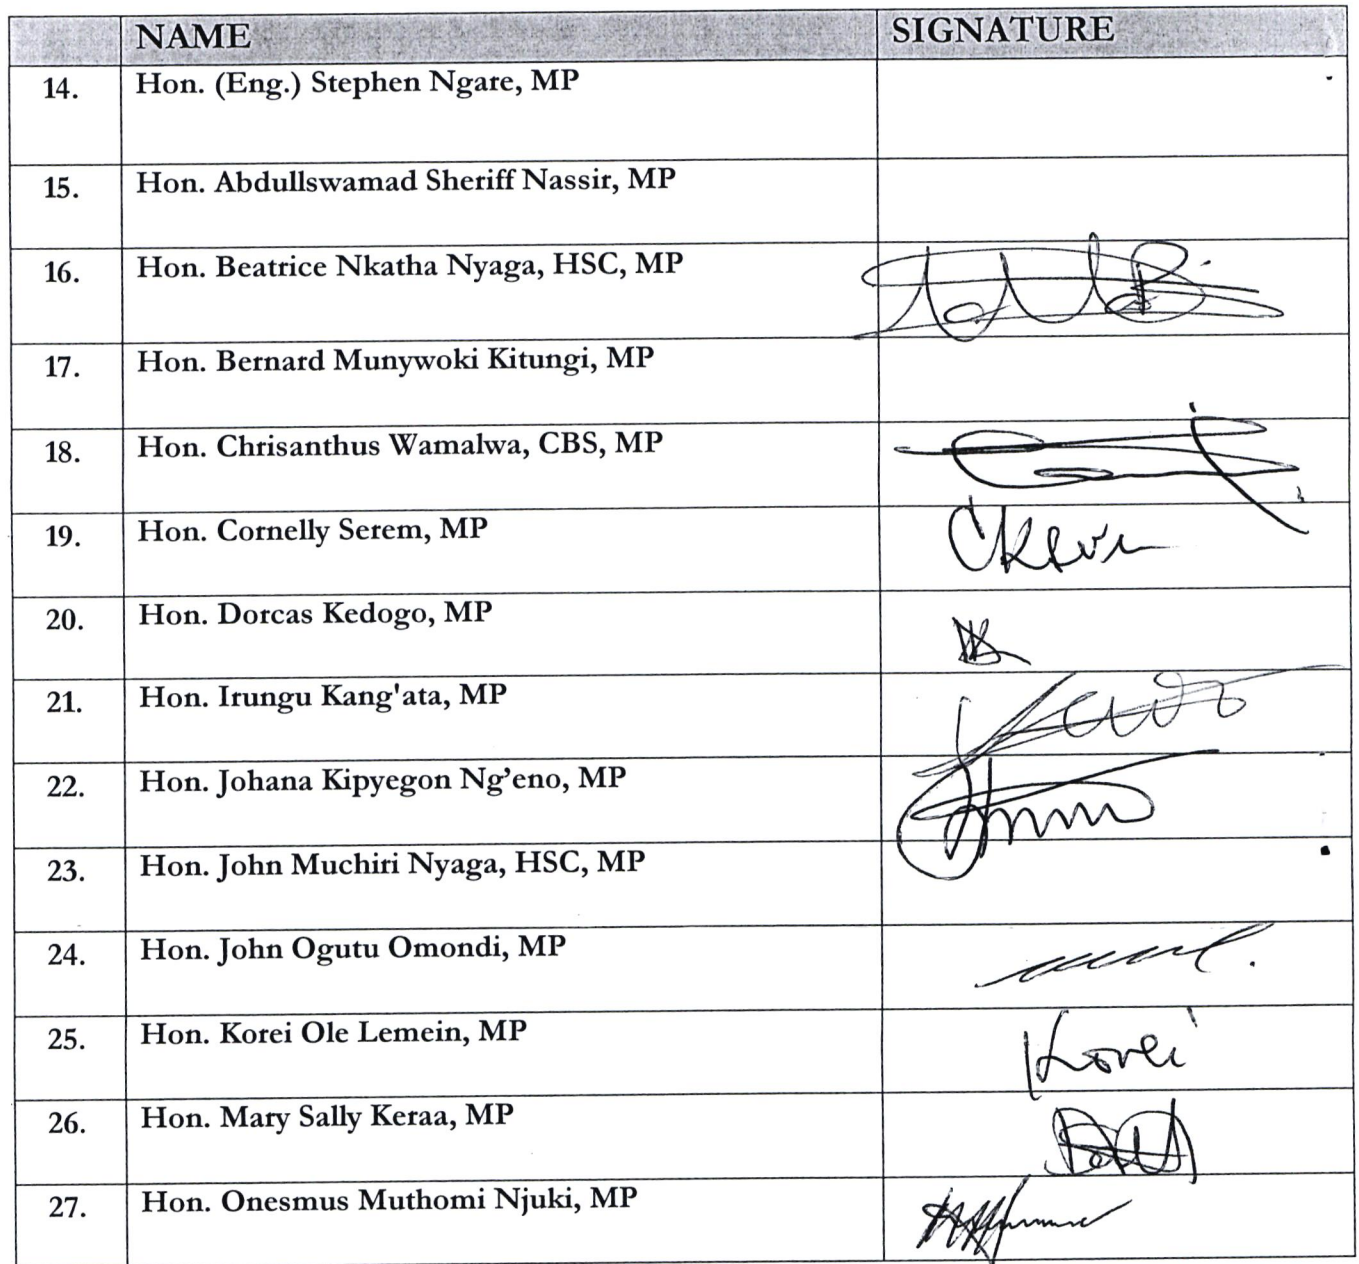 NAME SIGNATURE
14. Hon. (Eng.) Stephen Ngare, MP
15. Hon. Abdullswamad Sheriff Nassir, MP
16. Hon. Beatrice Nkatha Nyaga, HSC, MP
17. Hon. Bernard Munywoki Kitungi, MP
18. Hon. Chrisanthus Wamalwa, CBS, MP
19. Hon. Cornelly Serem, MP
20. Hon. Dorcas Kedogo, MP
21. Hon. Irungu Kang'ata, MP
22. Hon. Johana Kipyegon Ng’eno, MP
23. Hon. John Muchiri Nyaga, HSC, MP
24. Hon. John Ogutu Omondi, MP
25. Hon. Korei Ole Lemein, MP Korei
26. Hon. Mary Sally Keraa, MP
27. Hon. Onesmus Muthomi Njuki, MP